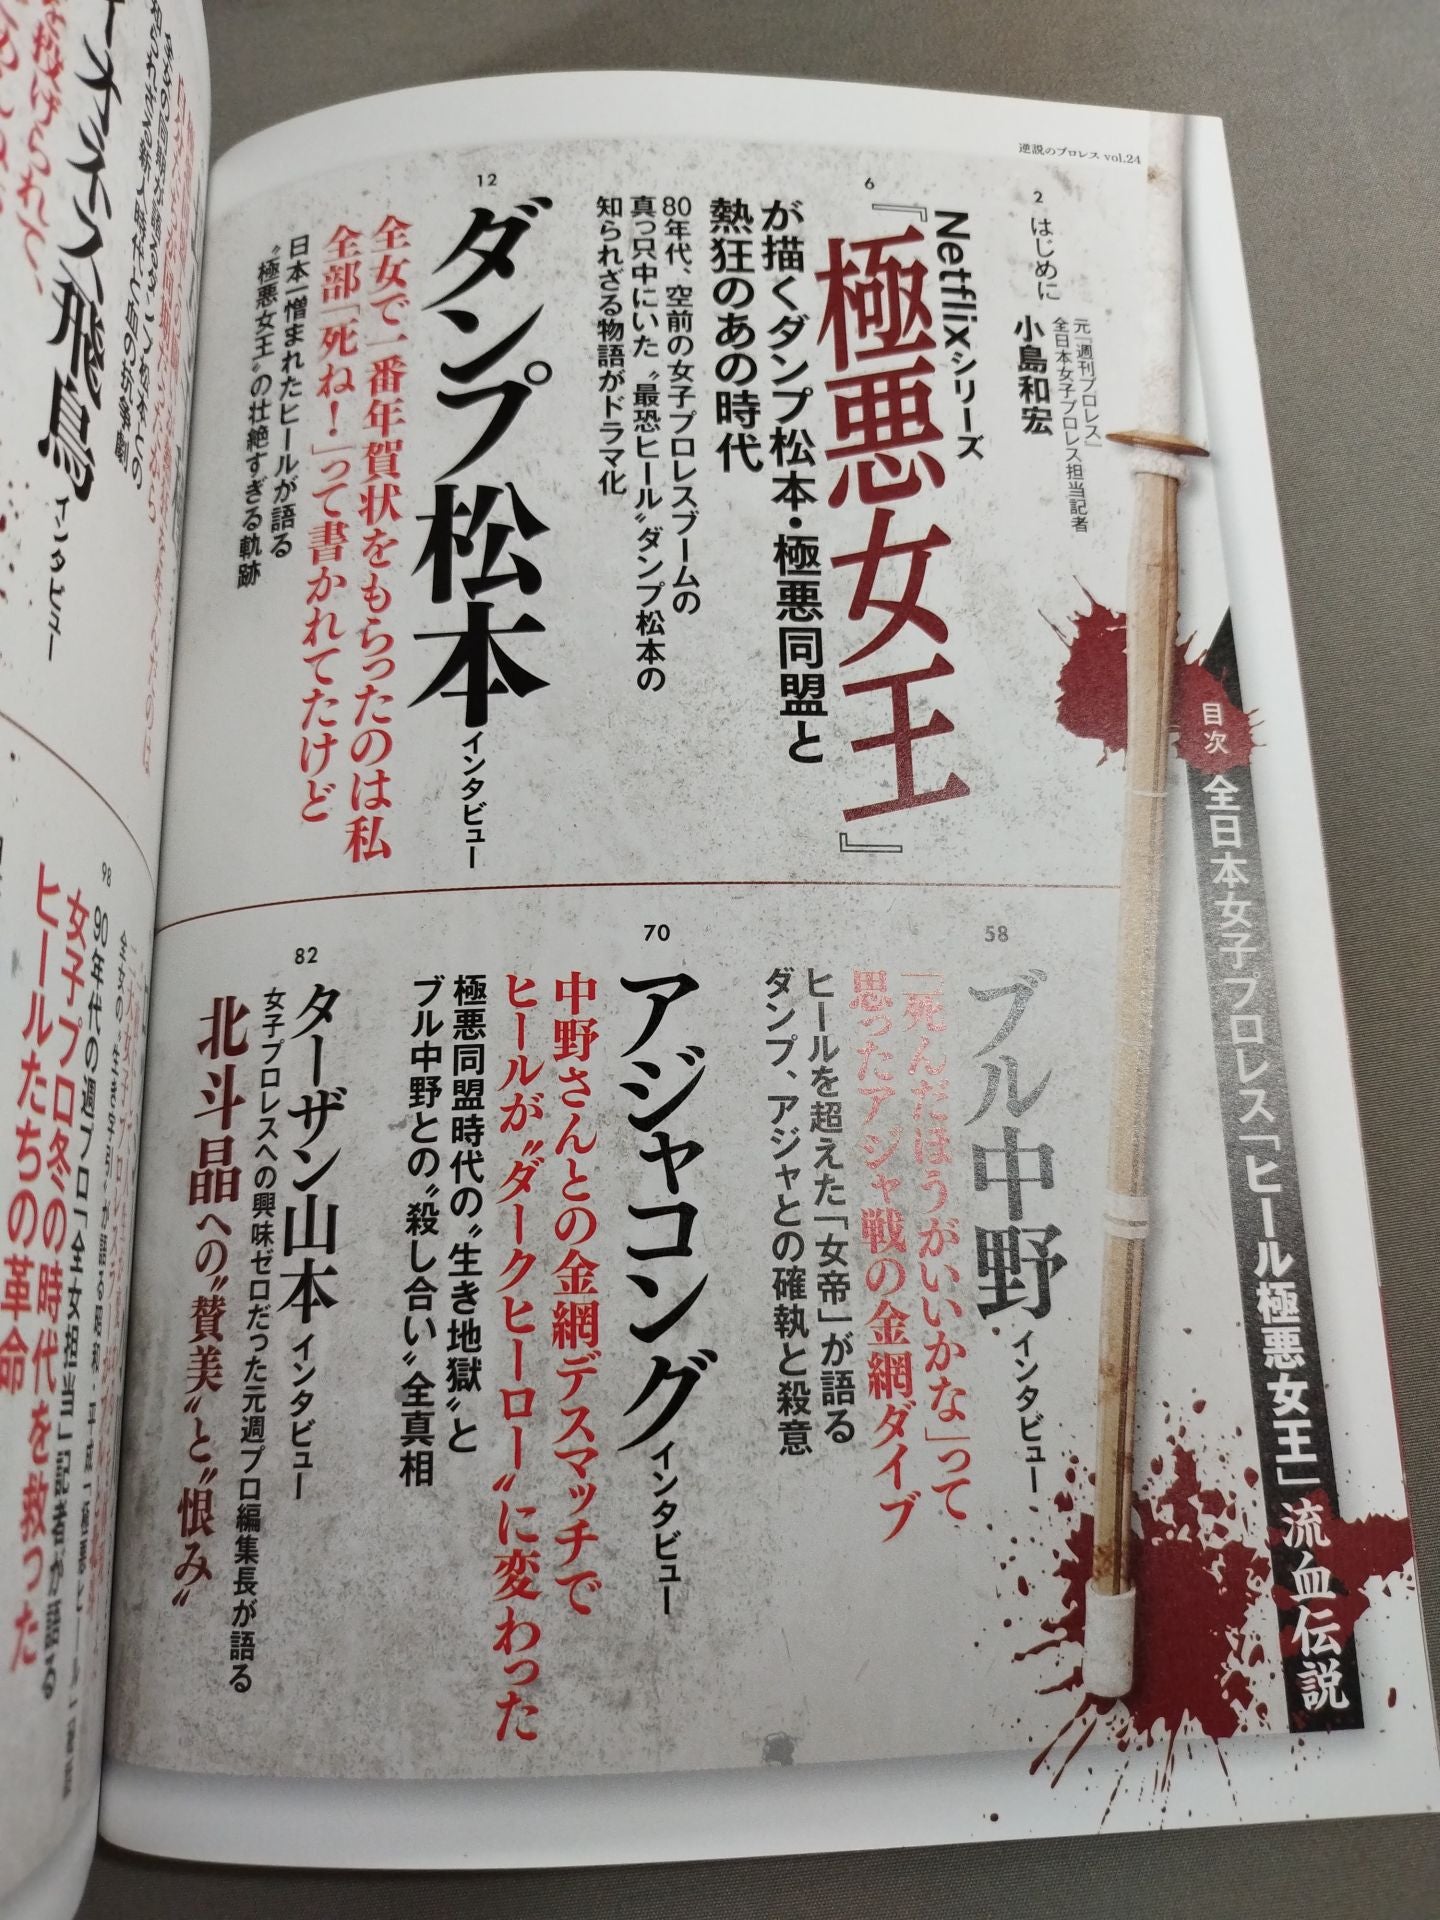 逆説のプロレス vol.24
目次
全日本女子プロレス「ヒール極悪女王」流血伝説
2
はじめに
元『週刊プロレス』
全日本女子プロレス担当記者
小島和宏
6
Netflixシリーズ
『極悪女王』
が描くダンプ松本・極悪同盟と
熱狂のあの時代
80年代、空前の女子プロレスブームの
真っ只中にいた〝最恐ヒール〟ダンプ松本の
知られざる物語がドラマ化
12
ダンプ松本
インタビュー
全女で一番年賀状をもらったのは私
全部「死ね！」って書かれてたけど
日本一憎まれたヒールが語る
〝極悪女王〟の壮絶すぎる軌跡
58
ブル中野
インタビュー
「死んだほうがいいかな」って
思ったアジャ戦の金網ダイブ
ヒールを超えた「女帝」が語る
ダンプ、アジャとの確執と殺意
70
アジャコング
インタビュー
中野さんとの金網デスマッチで
ヒールが〝ダークヒーロー〟に変わった
極悪同盟時代の〝生き地獄〟と
ブル中野との〝殺し合い〟全真相
82
ターザン山本
インタビュー
女子プロレスへの興味ゼロだった元週プロ編集長が語る
北斗晶への〝賛美〟と〝恨み〟
飛鳥
インタビュー
を投げられて、
98
90年代の週プロ「全女担当」記者が語る
女子プロ冬の時代を救った
ヒールたちの革命